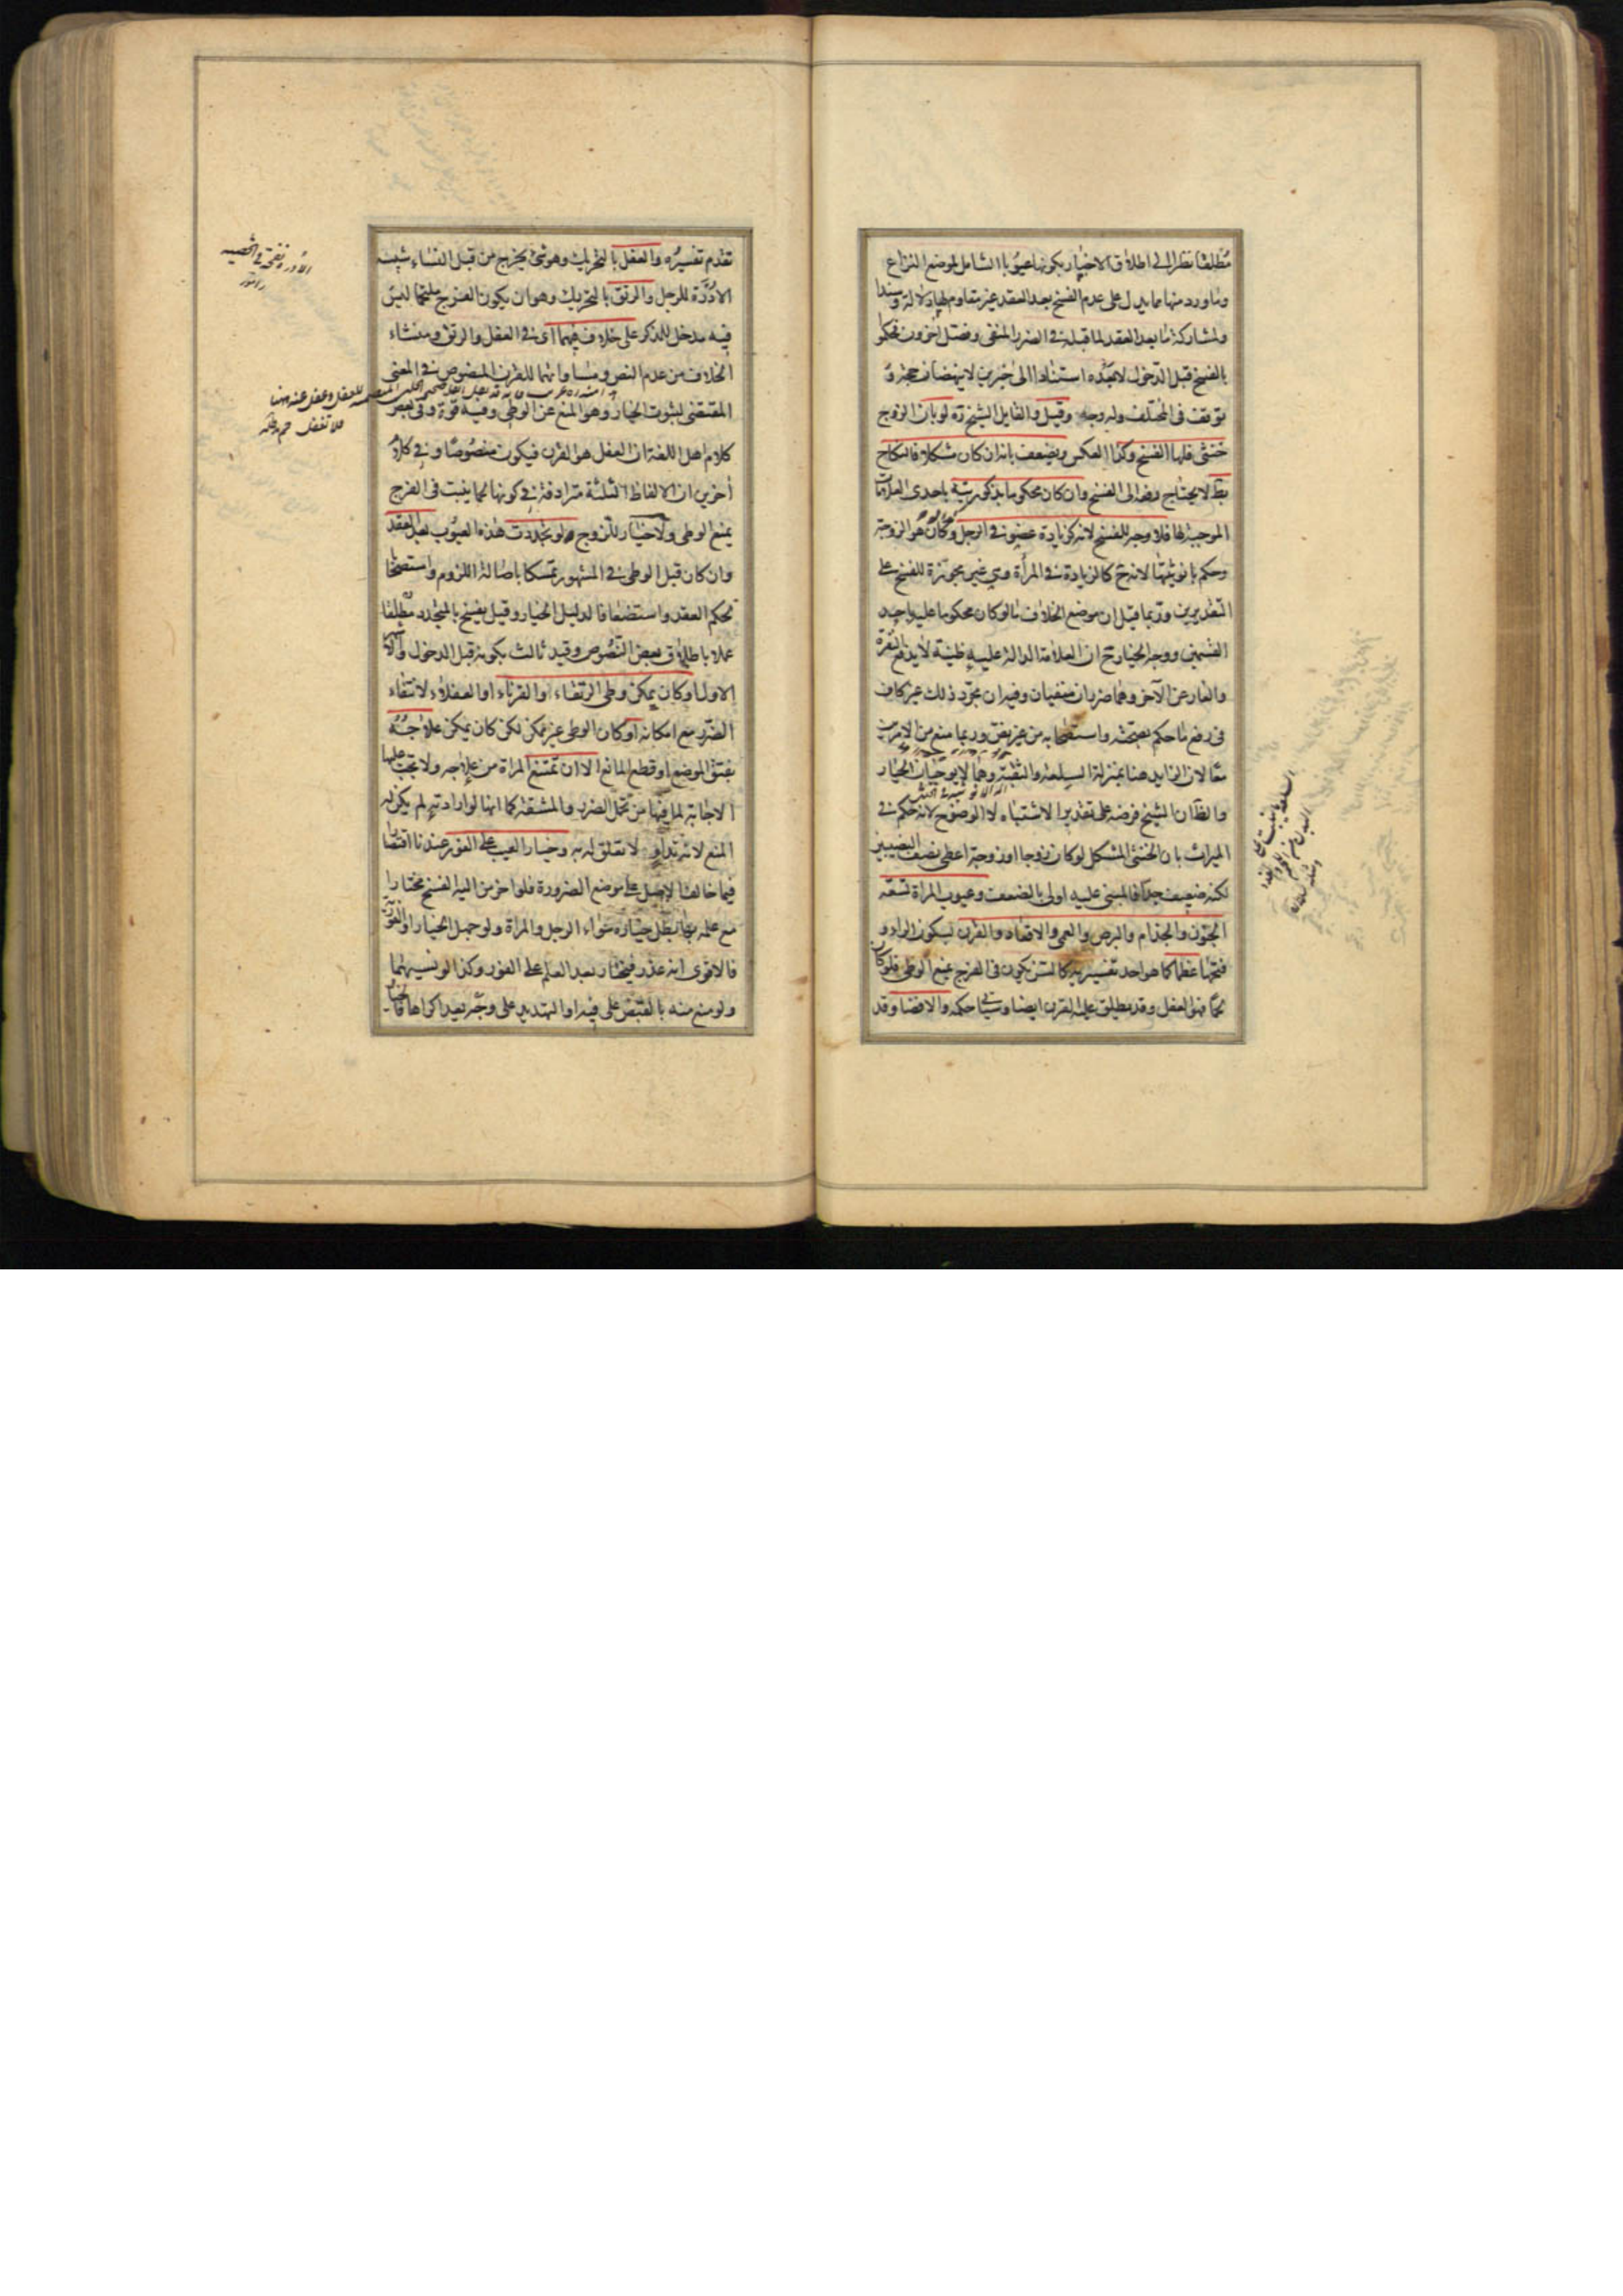 مطلقا نظرا الى اطلاق الاخبار بكونها عيوبا الشامل لموضع النزاع
وما ورد منها مما يدل على عدم الفسخ بعد العقد غير مقاوم لها دلالة وسندا
ولمشاركة ما بعد العقد لما قبله فى الضرر المنفى وفصل آخرون فحكموا
بالفسخ قبل الدخول لا بعده استنادا الى خبرين لا ينهضان حجة و
توقف فى المختلف وله وجه وقيل والقايل الشيخ ره لو بان الزوج
خنثى فلها الفسخ وكذا العكس ويضعف بانه ان كان مشكلا فالنكاح
بط لا يحتاج رفعه الى الفسخ وان كان محكوما بذكوريته باحدى العلامات
الموجبة لها فلا وجه للفسخ لانه كزيادة عضو فى الرجل وكذا لو كان هو الزوجة
وحكم بانوثيتها لانه ح كالزيادة فى المرأة وهى غير مجوزة للفسخ على
التقديرين وربما قيل ان موضع الخلاف ما لو كان محكوما عليه باحد
القسمين ووجه الخيار ح ان العلامة الدالة عليه ظنية لا يدفع النفرة
والعار عن الآخر وهما ضرران منفيان وفيه ان مجرد ذلك غير كاف
فى رفع ما حكم بصحته واستصحابه من غير نص وربما منع من الامرين
معا لان الزايد هنا بمنزلة السلعة والثقبة وهما لا يوجبان الخيار
والظ ان الشيخ فرضه على تقدير الاشتباه لا الوضوح لانه حكم فى
الميراث بان الخنثى المشكل لو كان زوجا او زوجة اعطى نصف النصيبين
لكنه ضعيف جدا فالمبنى عليه اولى بالضعف وعيوب المرأة تسعة
الجنون والجذام والبرص والعمى والاقعاد والقرن بسكون الراء و
فتحها عظما كما هو احد تفسيريه كالسن يكون فى الفرج يمنع الوطى فلو كان
لحما فهو العفل وقد يطلق عليه القرن ايضا وسياتى حكمه والافضا وقد
تقدم تفسيره والعفل بالتحريك وهو شئ يخرج من قبل النساء شبيه
الادرة للرجل والرتق بالتحريك وهو ان يكون الفرج ملتحما ليس
فيه مدخل للذكر على خلاف فيهما اى فى العفل والرتق ومنشاء
الخلاف من عدم النص ومساواتهما للقرن المنصوص فى المعنى
المقتضى لثبوت الخيار وهو المنع عن الوطى وفيه قوة وفى بعض
كلام اهل اللغة ان العفل هو القرن فيكون منصوصا وفى كلام
آخرين ان الالفاظ الثلثة مترادفة فى كونها لحما ينبت فى الفرج
يمنع الوطى ولا خيار للزوج لو تجددت هذه العيوب بعد العقد
وان كان قبل الوطى فى المشهور تمسكا باصالة اللزوم واستصحابا
لحكم العقد واستضعافا لدليل الخيار وقيل يفسخ بالمتجدد مطلقا
عملا باطلاق بعض النصوص وقيد ثالث بكونه قبل الدخول والاشهر
الاول او كان يمكن وطى الرتقاء او القرناء او العفلاء لانتفاء
الضرر مع امكانه او كان الوطى غير ممكن لكن كان يمكن علاجه
بفتق الموضع او قطع المانع الا ان تمتنع المرأة من علاجه ولا يجب عليها
الاجابة لما فيها من تحمل الضرر والمشقة كما انها لو ارادته لم يكن له
المنع لانه تداو لا تعلق له به وخيار العيب على الفور عندنا اقتصارا
فيما خالف الاصل على موضع الضرورة فلو اخر من اليه الفسخ مختارا
مع علمه بها بطل خياره سواء الرجل والمرأة ولو جهل الخيار او الفورية
فالاقوى انه عذر فيختار بعد العلم على الفور وكذا لو نسيهما
ولو منع منه بالقبض على فيه او التهديد على وجه يعد اكراها فالخيار
الادرة نفخة فى الخصية
فلا تغفل